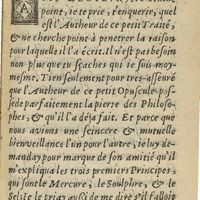 point, ie te prie, t'enquerir, quel
est l'Autheur de ce petit Traité,
& ne cherche point à penetrer la raison
pour laquelle il l'a escrit. Il n'est pas besoin
non plus que tu sçaches qui ie suis moy-
mesme. Tien seulement pour tres-asseuré
que l'Autheur de ce petit Opuscule pos-
sede parfaitement la pierre des Philoso-
phes, & qu'il l'a déja fait. Et parce que
nous avions une sincere & mutuelle
bienveillance l'un pour l'autre, ie luy de-
manday pour marque de son amitié qu'il
m'expliqua les trois premiers Principes,
qui sont le Mercure, le Soulphre, & le
Sel; ie le priay aussi de me dire s'il falloit